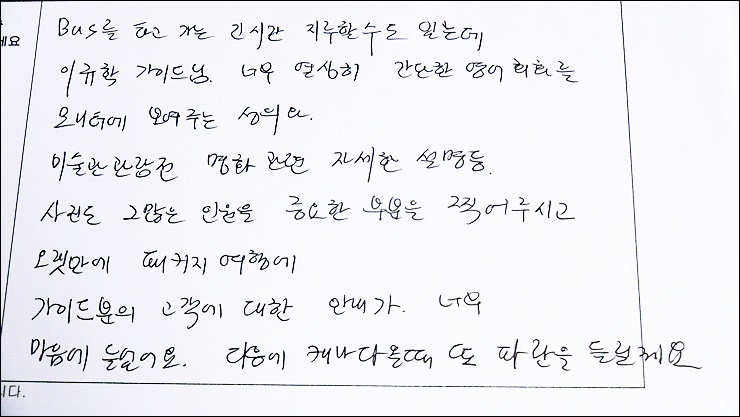 세요
Bus를 타고 가는 긴시간 지루할수도 있는데
이규학 가이드님. 너무 열심히 간단한 영어회화를
모니터에 보여주는 성의와.
미술관관람전 명화 관련 자세한 설명등.
사진도 그많은 인원을 중요한 부분을 찍어주시고
오랫만에 패키지 여행에
가이드분의 고객에 대한 안내가. 너무
마음에 들었어요. 다음에 캐나다올때 또 파란을 들릴께요
니다.